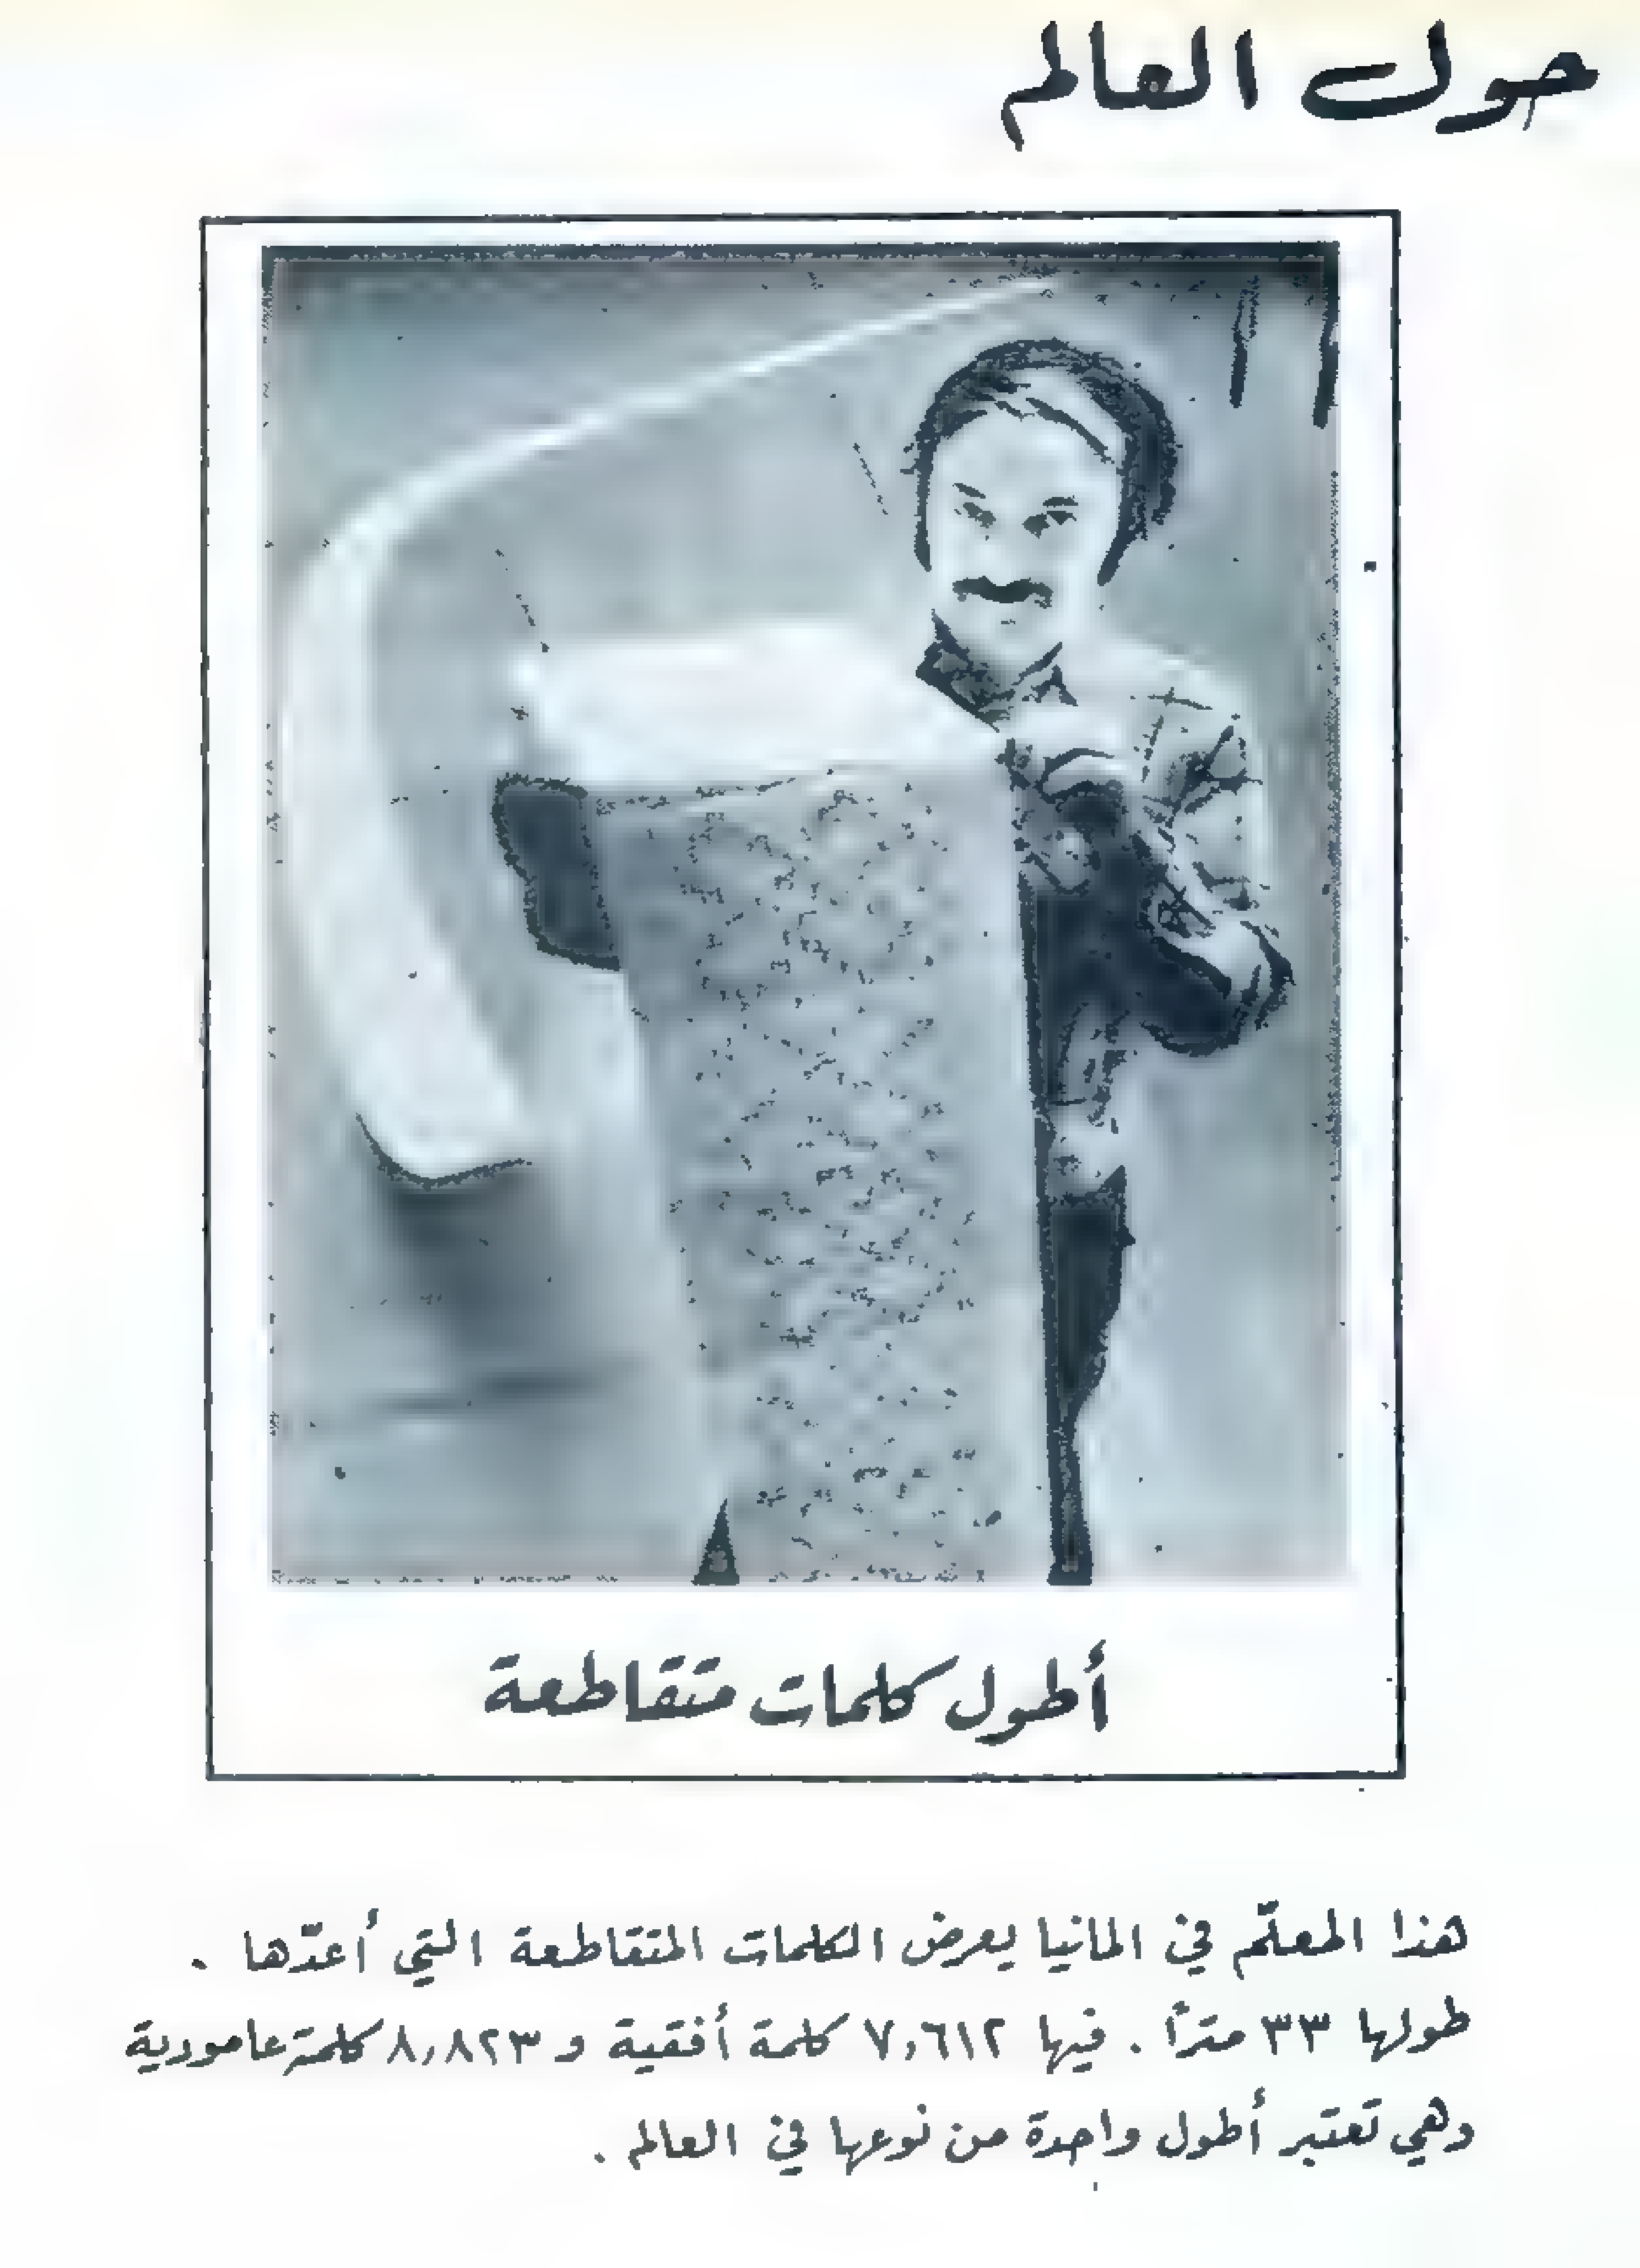 حول العالم
أطول كلمات متقاطعة
هذا المعلّم في المانيا يعرض الكلمات المتقاطعة التي أعدّها .
طولها ٣٣ متراً . فيها ٧,٦١٢ كلمة أفقية و ٨,٨٢٣ كلمة عامودية
وهي تعتبر أطول واحدة من نوعها في العالم .